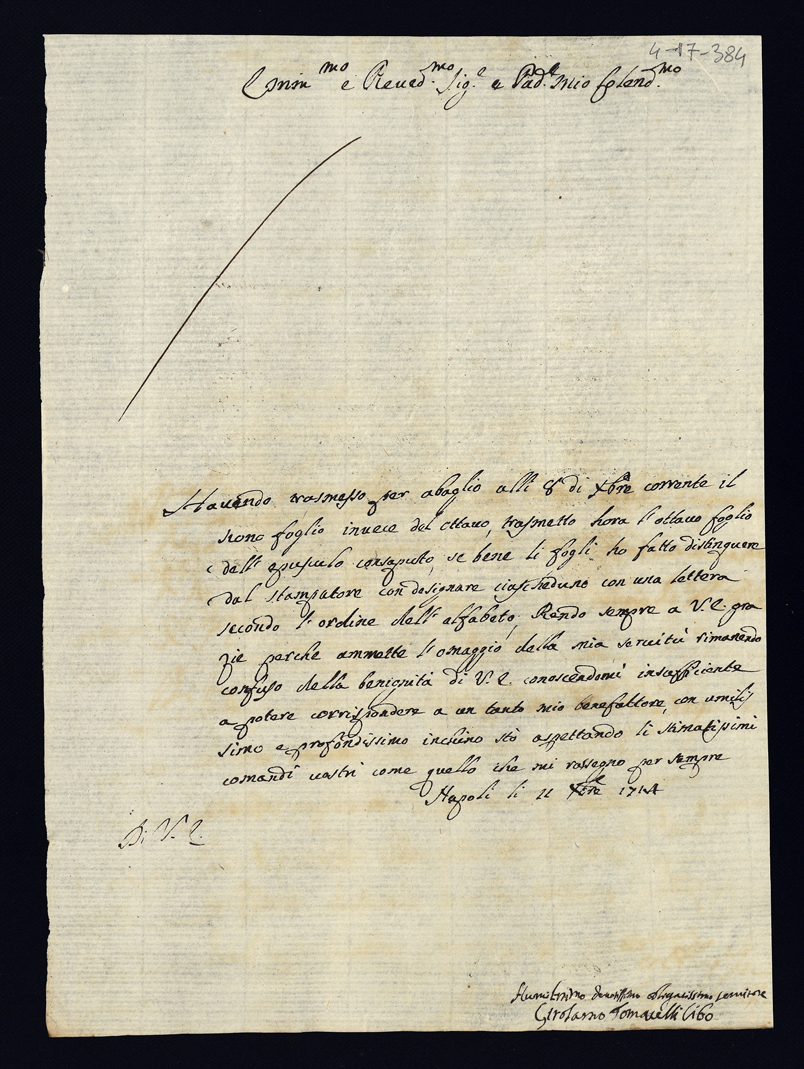 4-17-384
Emin.mo e Reued.mo Sig.e e Pad.e mio Colend.mo
Hauendo trasmesso per abaglio alli 8 di Xbre corrente il
nono foglio inuece del ottauo, trasmetto hora l'ottauo foglio
dell'opusculo consaputo, se bene li fogli ho fatto distinguere
dal stampatore con designare ciascheduno con una lettera
secondo l'ordine dell'alfabeto, Rendo sempre a V.E. gra
zie perche ammette l'omaggio della mia seruitù rimanendo
confuso della benignità di V.E. conoscendomi insufficiente
a potere corrispondere a un tanto mio benefattore, con umilis
simo e profondissimo inchino stò aspettando li stimatissimi
comandi vostri come quello che mi rassegno per sempre
Napoli li 11 Xbre 1714
Di V.E.
Humilissimo deuotissimo obligatissimo seruitore
Girolamo Cibo